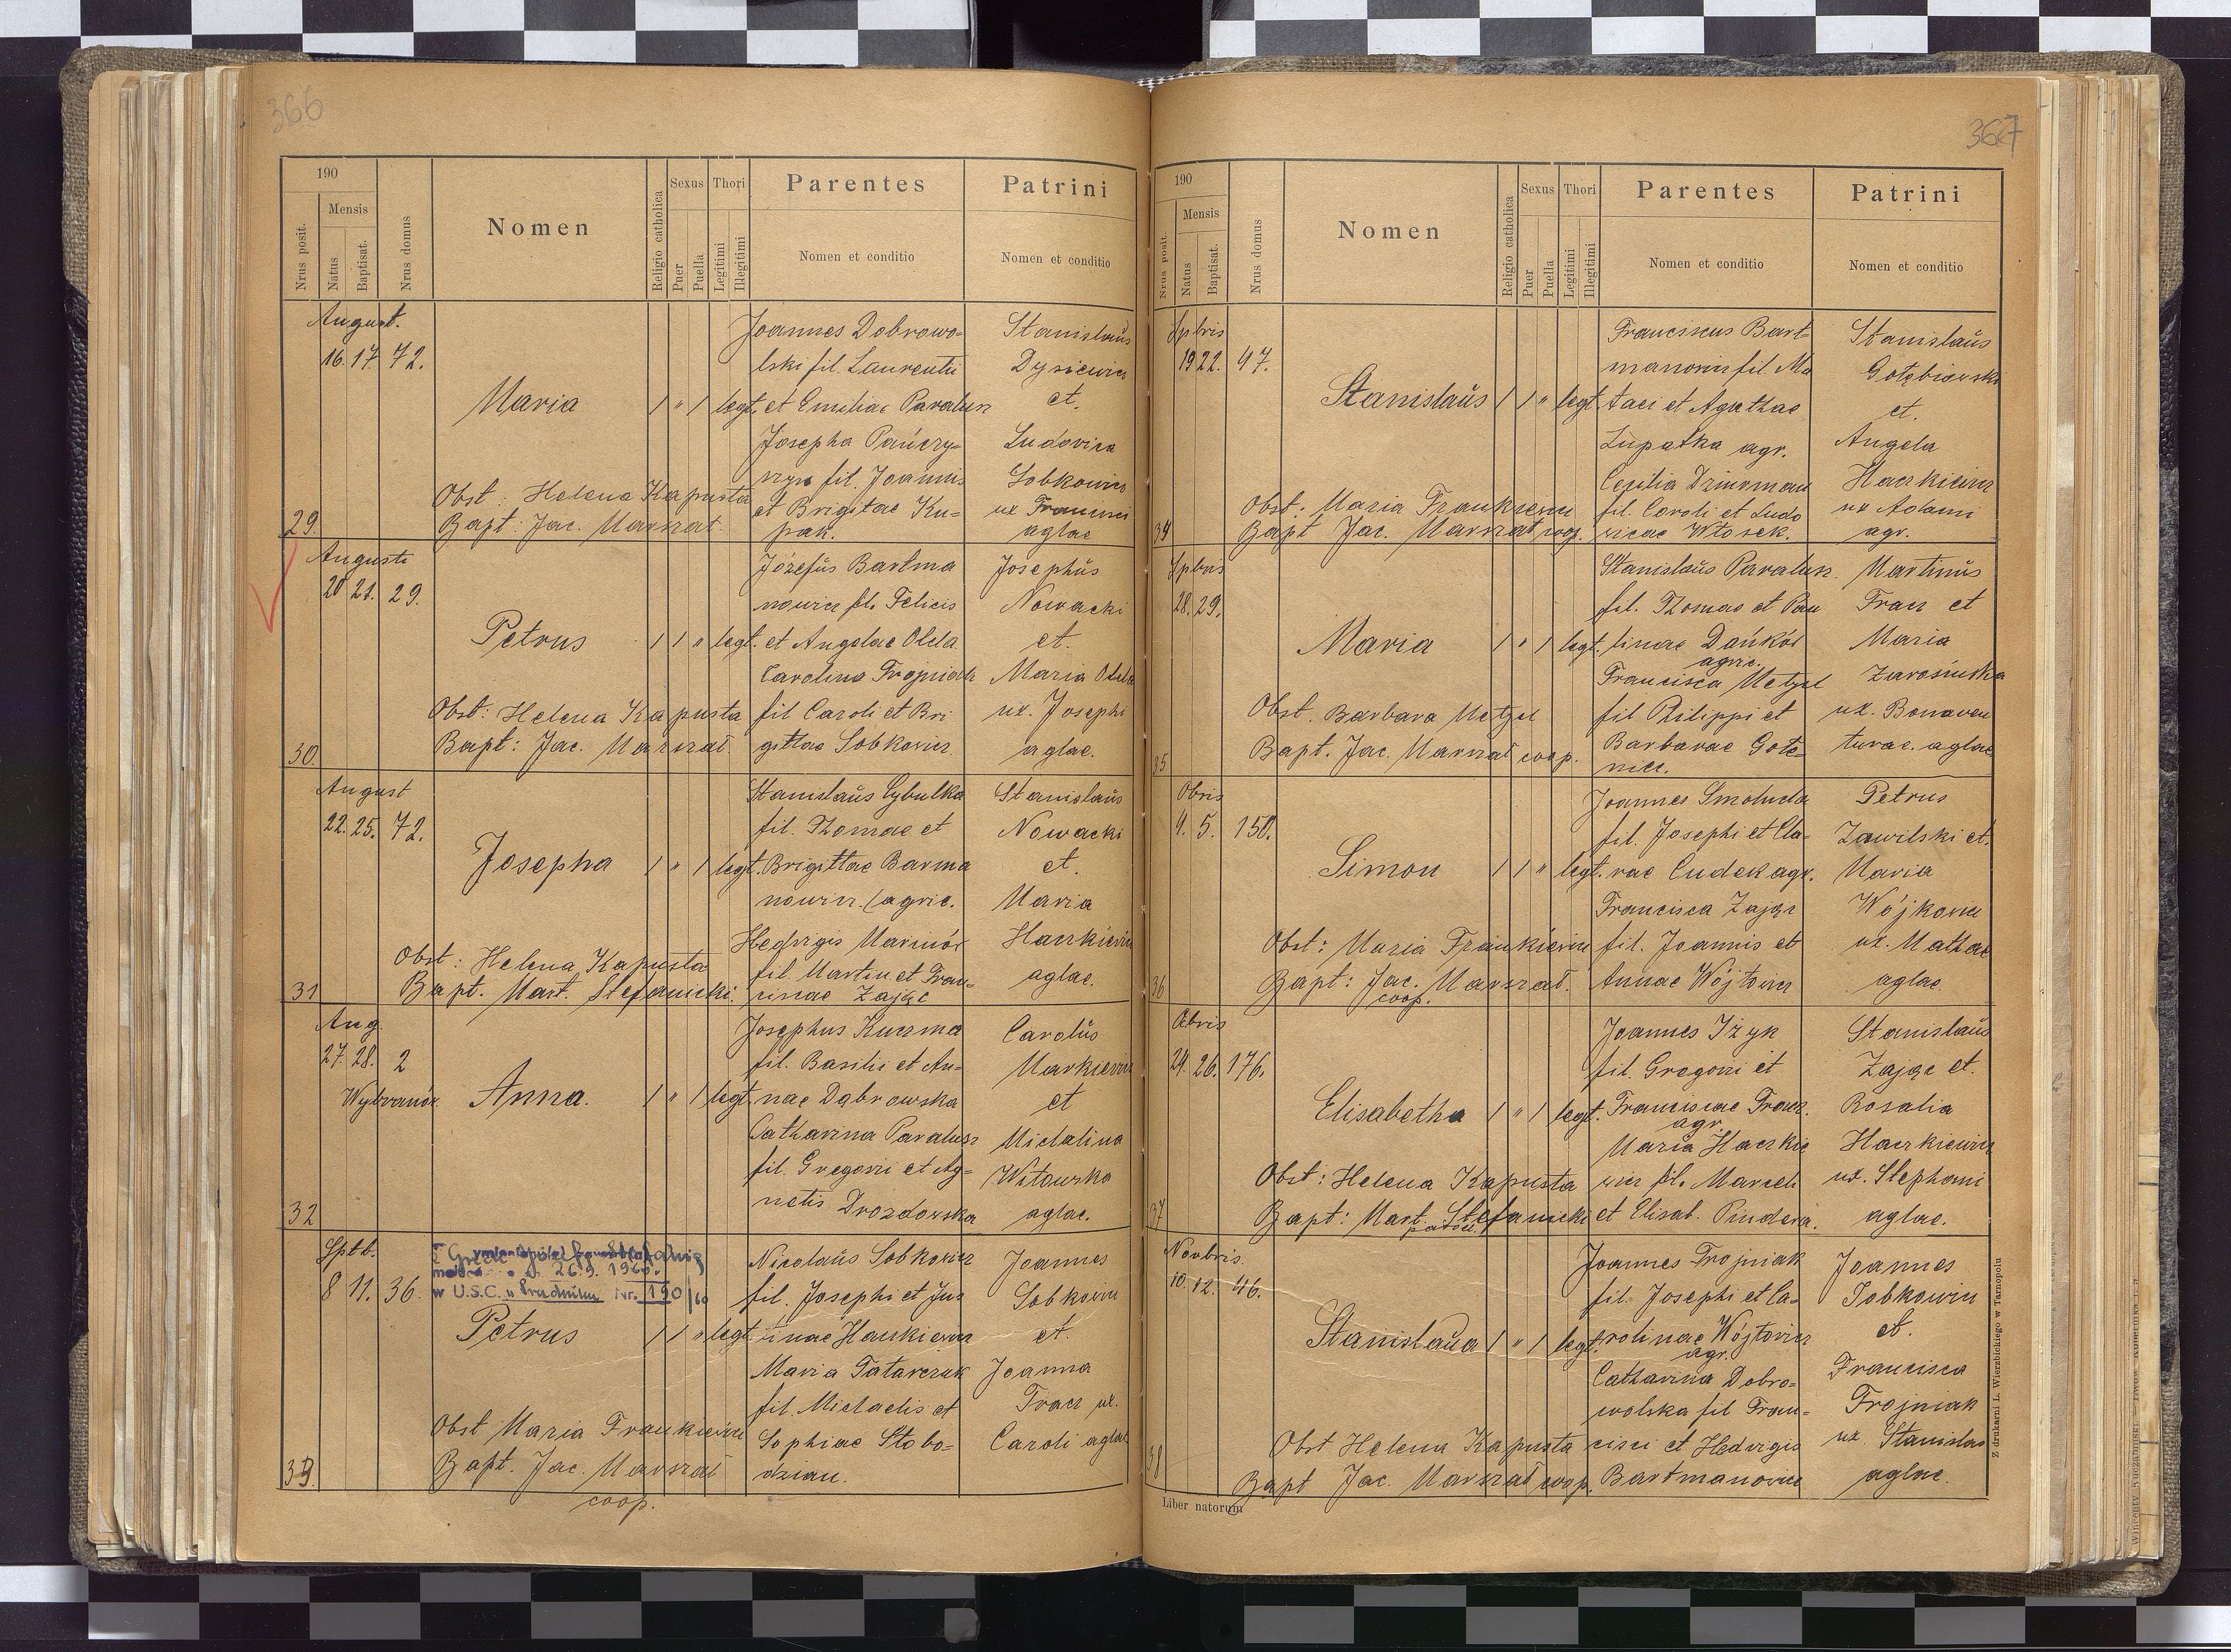 366
190
Nrus posit.
Mensis
Natus
Baptisat.
Nrus domus
Nomen
Religio catholica
Sexus
Puer
Puella
Thori
Legitimi
Illegitimi
Parentes
Nomen et conditio
Patrini
Nomen et conditio
29.
August.
16. 17. 72.
Maria
1 " 1 legt.
Obst: Helena Kapusta
Bapt: Jac. Marszał
Joannes Dobrowo=
lski fil. Laurentii
et Emiliae Paraluk
Josepha
fil. Joannis
et Brigitae Ku=
pak.
Stanislaŭs
Dysiewicz
et.
Ludovica
Sobkowicz
ux Francisci
aglae
30.
Augusti
20 21. 29.
Petrus
1 1 " legt.
Obst: Helena Kapusta
Bapt: Jac. Marszał
Józefŭs Bartma
nowicz fil. Felicis
et Angelae Olida
Carolina Trojniak
fil Caroli et Bri
gittae Sobkowicz
Josephŭs
Nowacki
et.
Maria
ux. Josephi
aglae.
31
August
22. 25. 72.
Josepha
1 " 1 legt.
Obst: Helena Kapusta
Bapt. Mart. Stefanicki.
Stanislaŭs Cybulka
fil. Thomae et
Brigittae Barma
nowicz. (agric.
Hedvigis
fil. Martin et Fran=
ciscae Zając
Stanislaŭs
Nowacki
et.
Maria
Harkiewicz
aglae.
32
Aug.
27. 28. 2
Wybranów.
Anna.
1 " 1 legt.
Josephus Kurma
fil. Basilii et An=
nae Dąbrowska
Catharina Paralusz
fil. Gregorii et Ag=
netis Drozdowska
Carolŭs
Markiewicz
et
Michalina
Witowska
aglae.
33.
Sptb.
8 11. 36.
26.9. 1960.
w U.S.C. w Prudniku Nr. 190/60
Petrus
1 1 " legt.
Obst Maria Frankiewicz
Bapt. Jac. Marszał
coop.
Nicolaŭs Sobkowicz
fil. Josephi et Jus
tinae Hankiewicz
Maria Tatarczuk
fil. Michaelis et
Sophiae Słobo=
dzian.
Joannes
Sobkowicz
et.
Joanna
Tracz ux.
Caroli aglae
367
190
Nrus posit.
Mensis
Natus
Baptisat.
Nrus domus
Nomen
Religio catholica
Sexus
Puer
Puella
Thori
Legitimi
Illegitimi
Parentes
Nomen et conditio
Patrini
Nomen et conditio
34
Spbris
19 22. 47.
Stanislaŭs
1 1 " legt.
Obst. Maria Frankiewicz
Bapt Jac. Marszał coop.
Franciscus Bart=
manowicz fil. Ma
taei et Agathae
Lŭpatka agr.
Cecilia
fil. Caroli et Ludo
vicae Włosek.
Stanislaŭs
Gołębiowski
et.
Angela
Haczkiewicz
ux Adami
agr.
35
Spbris
28. 29.
Maria
1 " 1 legt.
Obst. Barbara Metzel
Bapt. Jac. Marszał coop.
Stanislaŭs Paraluk.
fil. Thomae et Pau
linae Dańków
agric.
Francisca Metzel
fil Philippi et
Barbarae
Martinŭs
Tracz et
Maria
Zarosińska
ux. Bonaven
turae. aglae
36
Obris
4. 5. 150.
Simon
1 1 " legt.
Obst: Maria Frankiewicz
Bapt: Jac. Marszał.
coop.
Joannes Smoluda
fil. Josephi et Cla=
rae Cudek agr.
Francisca Zając
fil. Joannis et
Annae Wójtowicz
Petrus
Zawilski et.
Maria
Wójkowicz
ux. Mathae
aglae.
37
Obris
24. 26. 176.
Elisabetha
1 " 1 legt.
Obst: Helena Kapusta
Bapt: Mart. Stefanicki
Joannes Iżyk
fil. Gregorii et
Franciscae Tracz.
agr.
Maria Haczkie
wicz fil. Marceli
et Elisab. Pindera.
Stanislaŭs
Zając et.
Rosalia
Haczkiewicz
ux. Stephani
aglae.
38
Novbris.
10. 12. 46.
Stanislaŭa
1 " 1 legt.
Obst Helena Kapusta
Bapt Jac. Marszał coop.
Joannes Trojniak
fil. Josephi et Ca=
rolinae Wójtowicz
agr.
Catharina Dobro=
wolska fil Fran=
cisci et Hedvigis
Bartmanowicz
Joannes
Sobkowicz
et.
Francisca
Trojniak
ux. Stanislai
aglae.
Liber natorum
Z drukarni L. Wierzbickiego w Tarnopolu